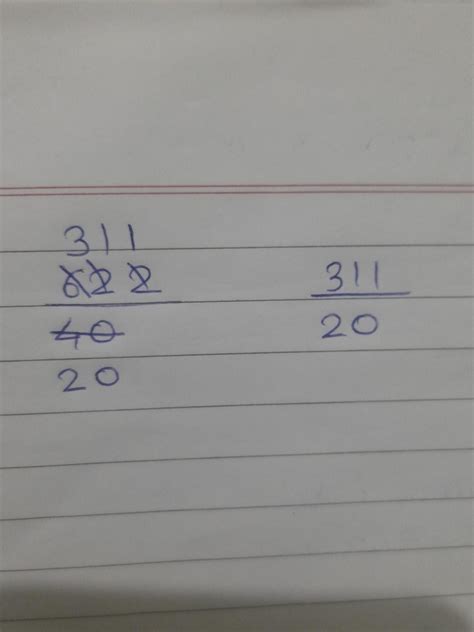 311
622
40
20
311
20